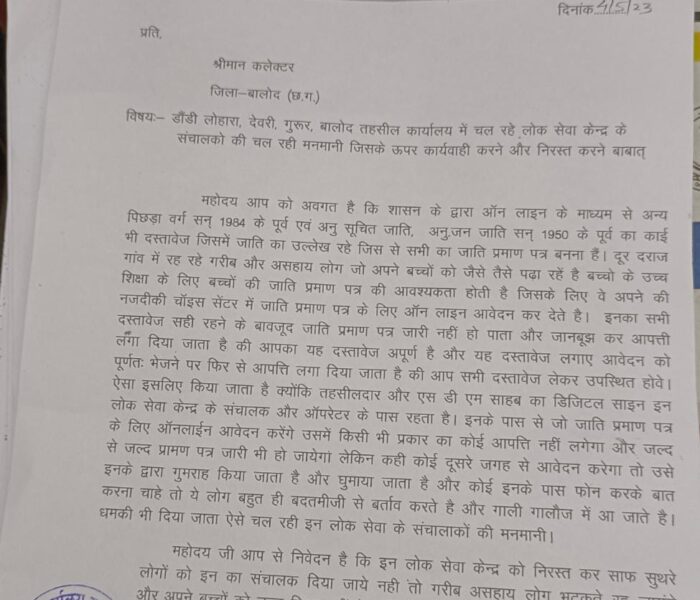 दिनांक 4/5/23
प्रति,
श्रीमान कलेक्टर
जिला–बालोद (छ.ग.)
विषयः– डौंडी लोहारा, देवरी, गुरूर, बालोद तहसील कार्यालय में चल रहे लोक सेवा केन्द्र के
संचालको की चल रही मनमानी जिसके ऊपर कार्यवाही करने और निरस्त करने बाबात्
महोदय आप को अवगत है कि शासन के द्वारा ऑन लाइन के माध्यम से अन्य
पिछड़ा वर्ग सन् 1984 के पूर्व एवं अनु सूचित जाति, अनु.जन जाति सन् 1950 के पूर्व का काई
भी दस्तावेज जिसमें जाति का उल्लेख रहे जिस से सभी का जाति प्रमाण पत्र बनना हैं। दूर दराज
गांव में रह रहे गरीब और असहाय लोग जो अपने बच्चों को जैसे तैसे पढ़ा रहें है बच्चो के उच्च
शिक्षा के लिए बच्चों की जाति प्रमाण पत्र की आवश्यकता होती है जिसके लिए वे अपने की
नजदीकी चॉइस सेंटर में जाति प्रमाण पत्र के लिए ऑन लाइन आवेदन कर देते है। इनका सभी
दस्तावेज सही रहने के बावजूद जाति प्रमाण पत्र जारी नहीं हो पाता और जानबूझ कर आपत्ती
लगा दिया जाता है की आपका यह दस्तावेज अपूर्ण है और यह दस्तावेज लगाए आवेदन को
पूर्णतः भेजने पर फिर से आपत्ति लगा दिया जाता है की आप सभी दस्तावेज लेकर उपस्थित होवे।
ऐसा इसलिए किया जाता है क्योंकि तहसीलदार और एस डी एम साहब का डिजिटल साइन इन
लोक सेवा केन्द्र के संचालक और ऑपरेटर के पास रहता है। इनके पास से जो जाति प्रमाण पत्र
के लिए ऑनलाईन आवेदन करेंगे उसमें किसी भी प्रकार का कोई आपत्ति नहीं लगेगा और जल्द
से जल्द प्रामण पत्र जारी भी हो जायेगां लेकिन कही कोई दूसरे जगह से आवेदन करेगा तो उसे
इनके द्वारा गुमराह किया जाता है और घुमाया जाता है और कोई इनके पास फोन करके बात
करना चाहे तो ये लोग बहुत ही बदतमीजी से बर्ताव करते है और गाली गालौज में आ जाते है।
धमकी भी दिया जाता ऐसे चल रही इन लोक सेवा के संचालाकों की मनमानी।
महोदय जी आप से निवेदन है कि इन लोक सेवा केन्द्र को निरस्त कर साफ सुथरे
लोगों को इन का संचालक दिया जाये नही तो गरीब असहाय लोग भटकते
और अपने बच्चों को